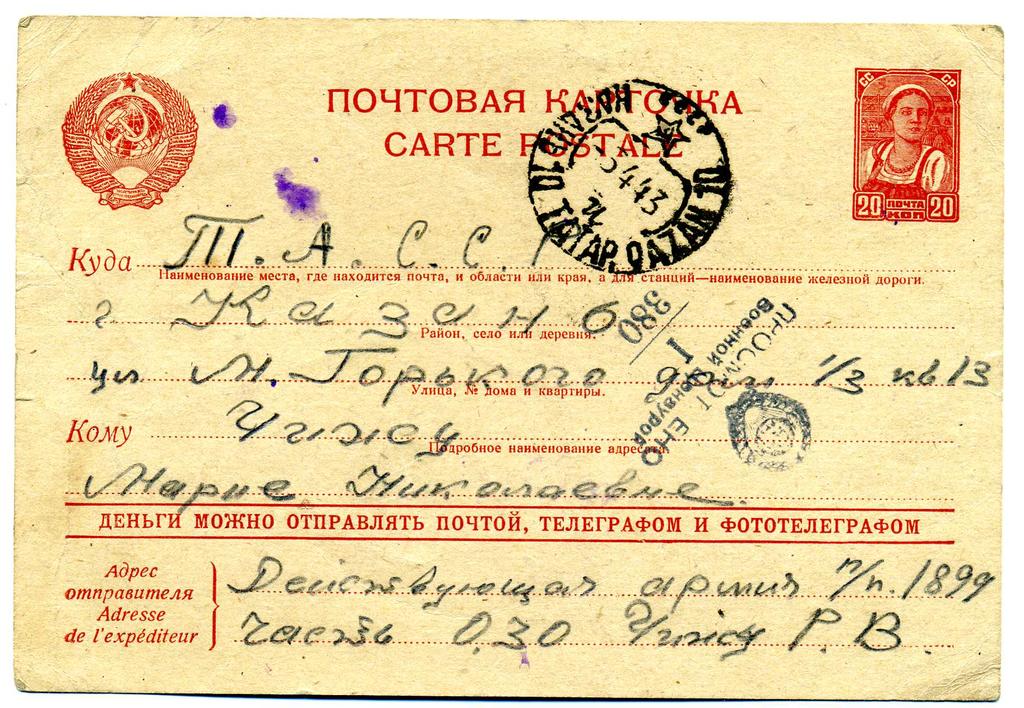 ПОЧТОВАЯ КАРТОЧКА
CARTE POSTALE
СС СР
20 ПОЧТА КОП 20
TATAR. QAZAN 10
5 4 43
Куда Т. А. С. С.
Наименование места, где находится почта, и области или края, а для станций—наименование железной дороги.
г Казань
Район, село или деревня.
ул М. Горького дом 1/3 кв 13
Улица, № дома и квартиры.
380
ПРОСМОТРЕНО
Военной Цензурой
Кому Чижу
Подробное наименование адресата.
Марие Николаевне.
ДЕНЬГИ МОЖНО ОТПРАВЛЯТЬ ПОЧТОЙ, ТЕЛЕГРАФОМ И ФОТОТЕЛЕГРАФОМ
Адрес отправителя
Adresse de l'expéditeur
Действующая армия п/п. 1899
Часть 030 Чижу Р. В.